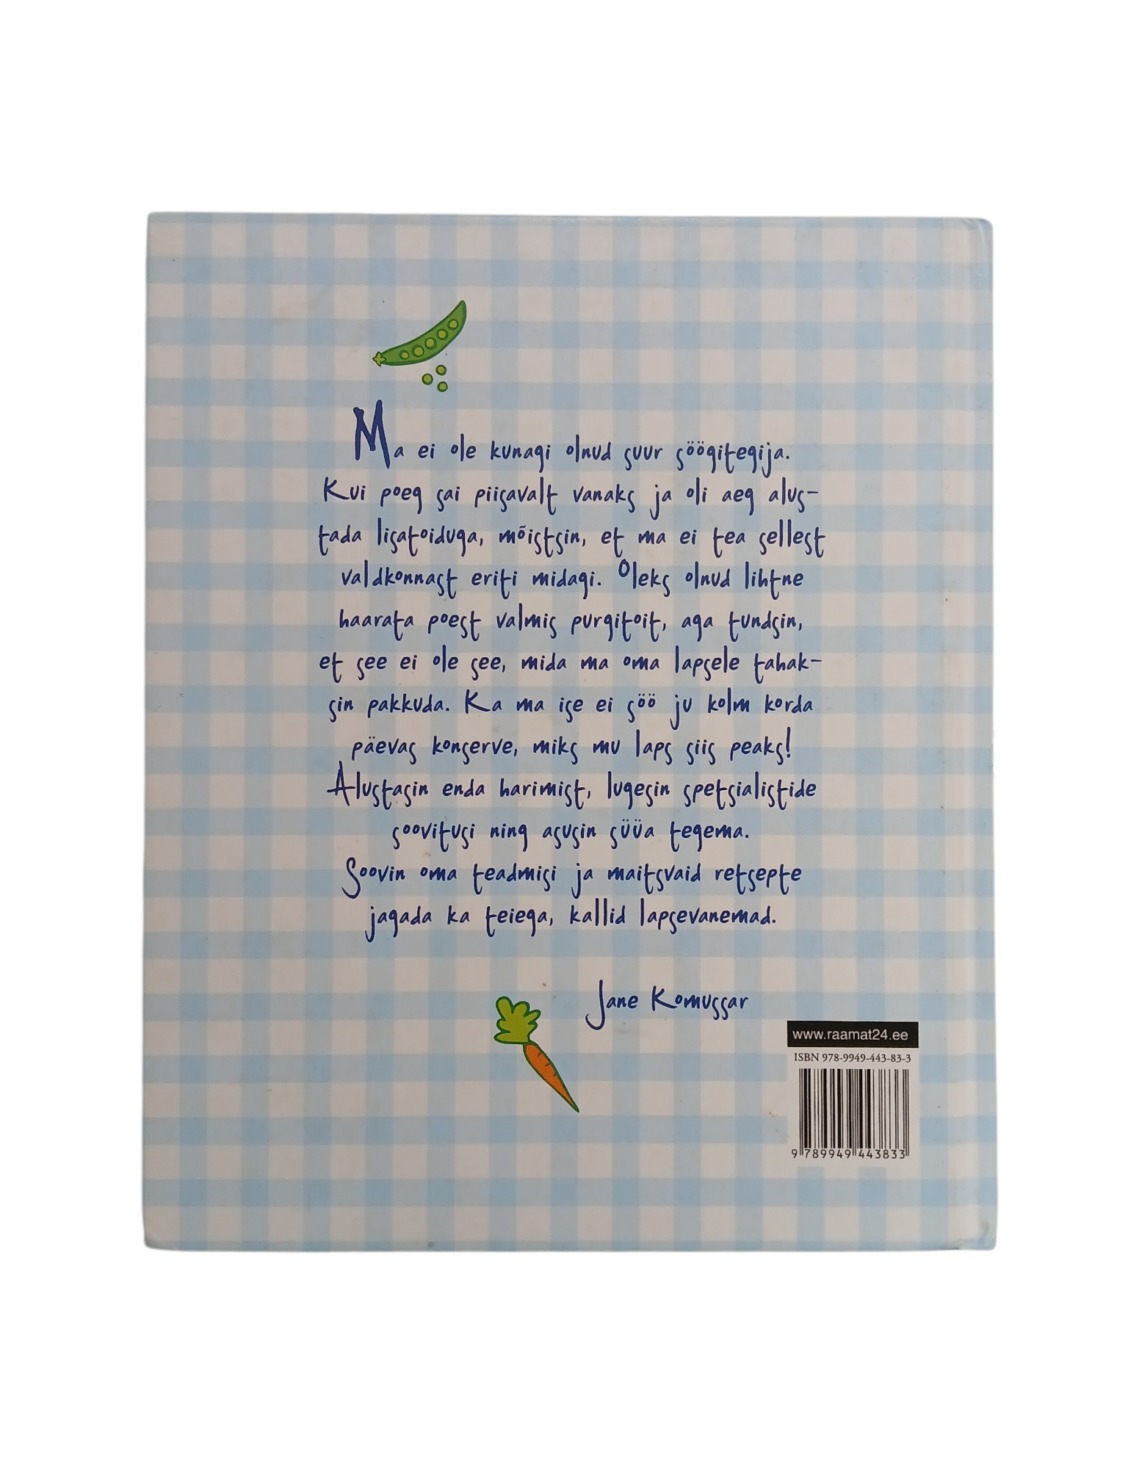 Ma ei ole kunagi olnud suur söögitegija.
Kui poeg sai piisavalt vanaks ja oli aeg alus-
tada lisatoiduga, mõistsin, et ma ei tea sellest
valdkonnast eriti midagi. Oleks olnud lihtne
haarata poest valmis purgitoit, aga tundsin,
et see ei ole see, mida ma oma lapsele tahak-
sin pakkuda. Ka ma ise ei söö ju kolm korda
päevas konserve, miks mu laps siis peaks!
Alustasin enda harimist, lugesin spetsialistide
soovitusi ning asusin süüa tegema.
Soovin oma teadmisi ja maitsvaid retsepte
jagada ka teiega, kallid lapsevanemad.
Jane Komussar
www.raamat24.ee
ISBN 978-9949-443-83-3
9 789949 443833